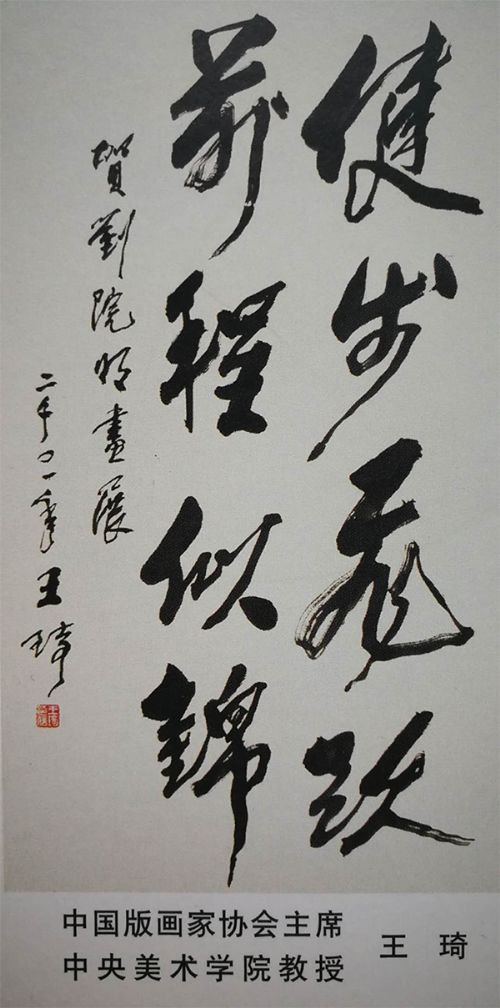 健步飛跃
前程似錦
賀劉院明畫展
二千〇一年 王琦
中国版画家协会主席
中央美术学院教授
王 琦